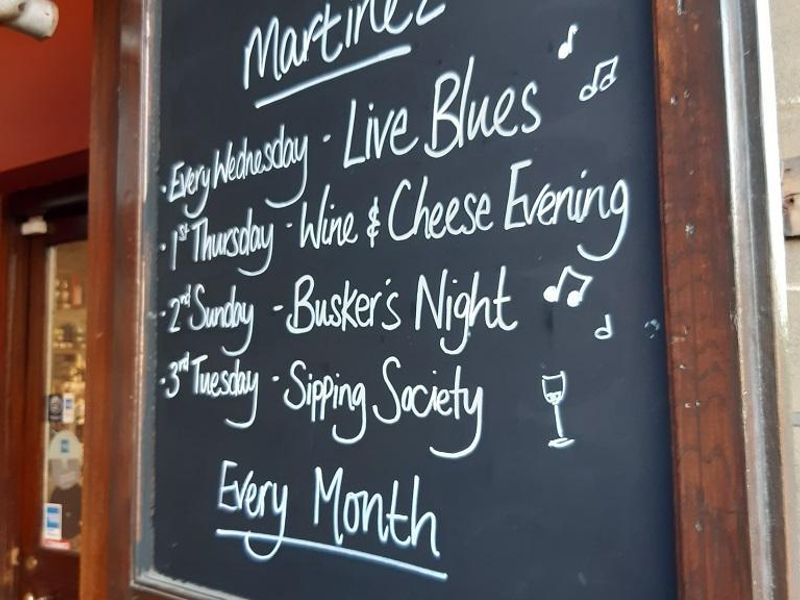 Martinez
· Every Wednesday - Live Blues
· 1st Thursday - Wine & Cheese Evening
· 2nd Sunday - Busker's Night
· 3rd Tuesday - Sipping Society
Every Month